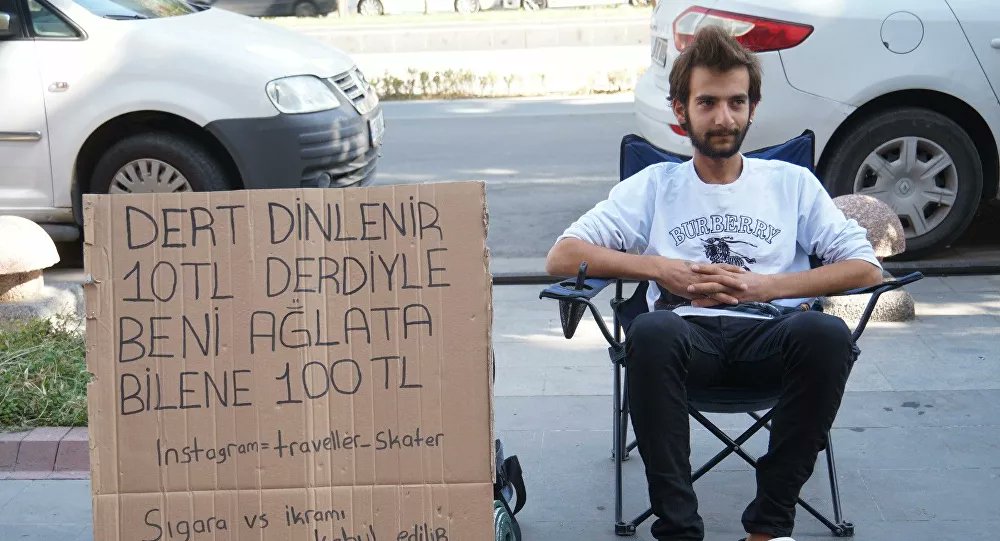 DERT DİNLENİR
10TL DERDİYLE
BENİ AĞLATA
BİLENE 100TL
Instagram=traveller_Skater
Sigara vs ikramı
kabul edilir
BURBERRY